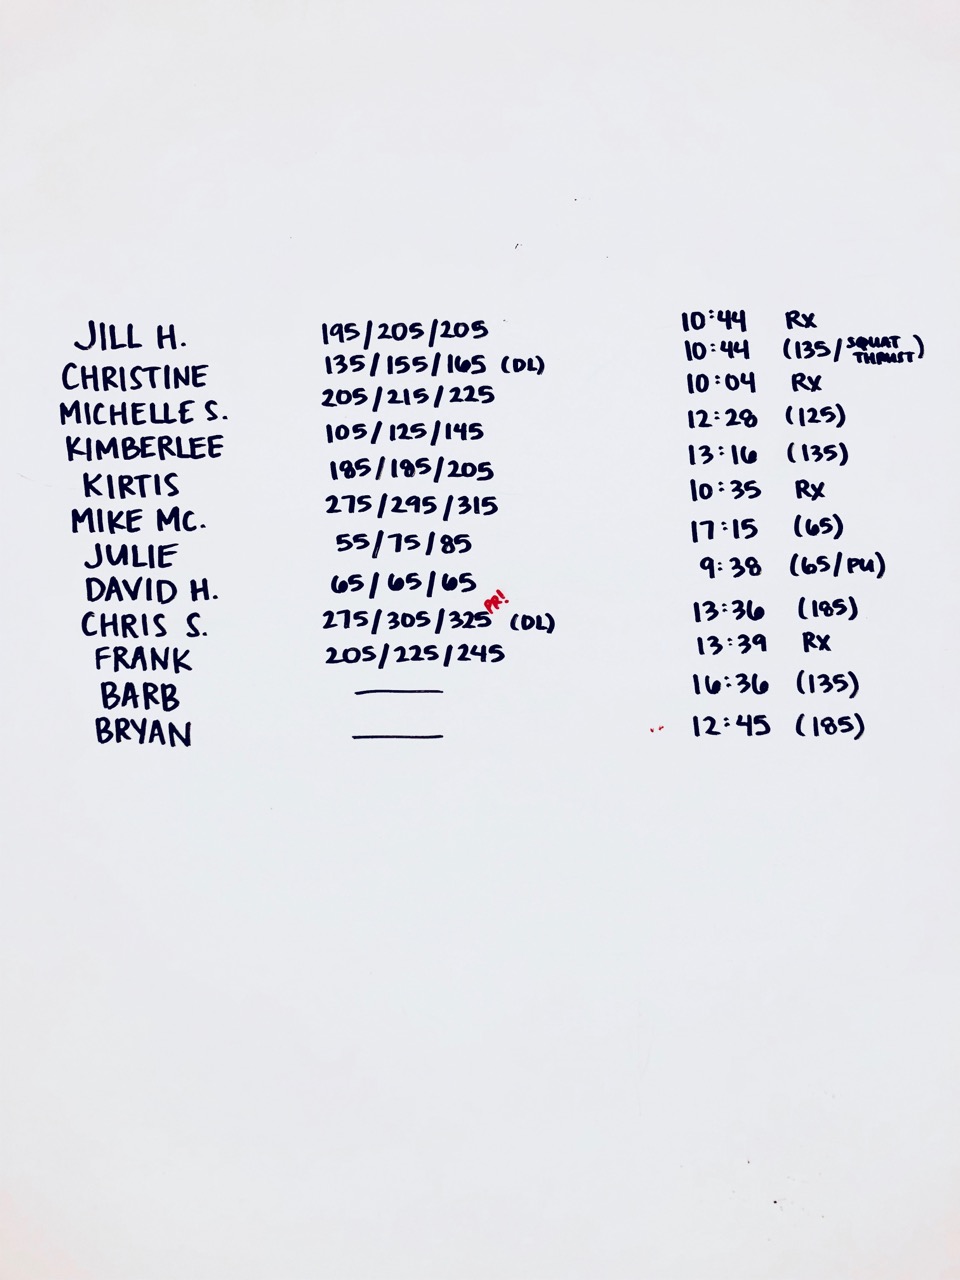 JILL H. 195/205/205 10:44 Rx
CHRISTINE 135/155/165 (DL) 10:44 (135/SQUAT THRUST)
MICHELLE S. 205/215/225 10:04 Rx
KIMBERLEE 105/125/145 12:28 (125)
KIRTIS 185/185/205 13:16 (135)
MIKE MC. 275/295/315 10:35 Rx
JULIE 55/75/85 17:15 (65)
DAVID H. 65/65/65 9:38 (65/PU)
CHRIS S. 275/305/325 PR! (DL) 13:36 (185)
FRANK 205/225/245 13:39 Rx
BARB —— 16:36 (135)
BRYAN —— 12:45 (185)